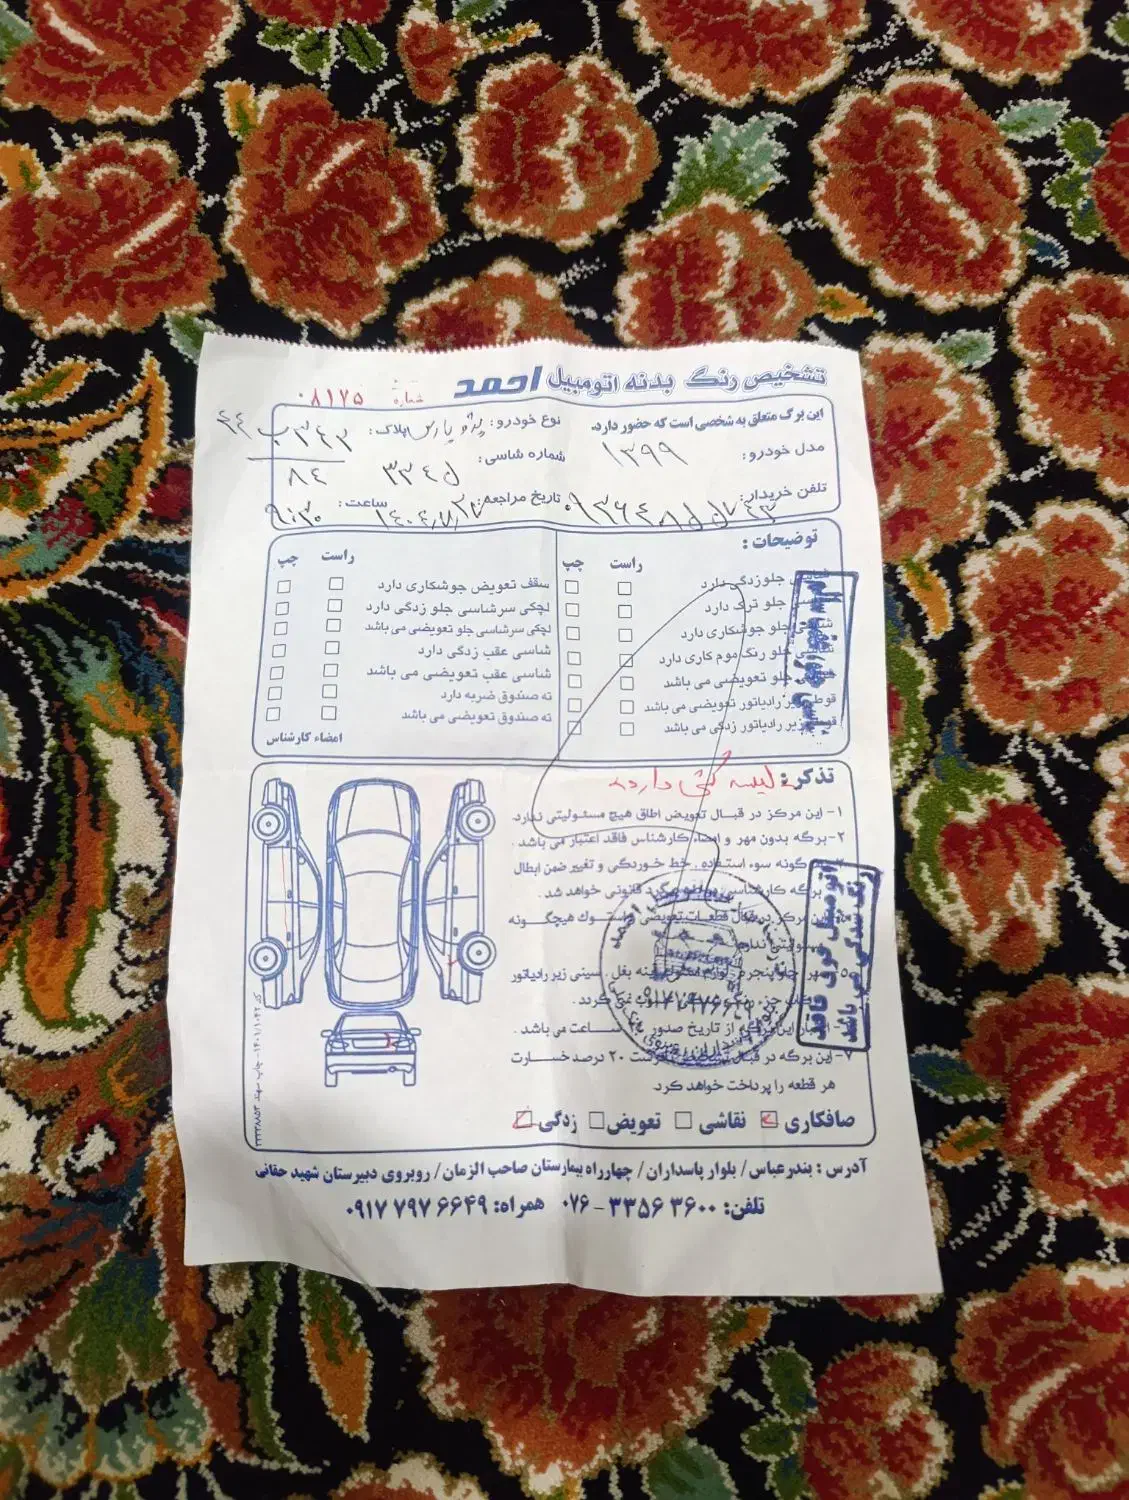 تشخیص رنگ بدنه اتومبیل احمد
شماره ۰۸۱۷۵
این برگ متعلق به شخصی است که حضور دارد.
نوع خودرو: پژو پارس
پلاک: ۳۴۳ب۲۴
۸۴
مدل خودرو: ۱۳۹۹
شماره شاسی:
تلفن خریدار:
تاریخ مراجعه:
ساعت: ۹:۳۰
توضیحات:
راست چپ
شاسی جلو زدگی دارد
شاسی جلو ترک دارد
شاسی جلو جوشکاری دارد
شاسی جلو رنگ موم کاری دارد
شاسی جلو تعویضی می باشد
قوطی زیر رادیاتور تعویضی می باشد
قوطی زیر رادیاتور زدگی می باشد
راست چپ
سقف تعویض جوشکاری دارد
لچکی سرشاسی جلو زدگی دارد
لچکی سرشاسی جلو تعویضی می باشد
شاسی عقب زدگی دارد
شاسی عقب تعویضی می باشد
ته صندوق ضربه دارد
ته صندوق تعویضی می باشد
امضاء کارشناس
تذکر: لیسه گیری دارد
۱- این مرکز در قبال تعویض اطاق هیچ مسئولیتی ندارد.
۲- برگه بدون مهر و امضاء کارشناس فاقد اعتبار می باشد.
گونه سوء استفاده، خط خوردگی و تغییر ضمن ابطال
برگه کارشناسی پیگرد قانونی خواهد شد.
این مرکز در قبال قطعات تعویضی و استوک هیچگونه
مسئولیتی ندارد.
سینی زیر رادیاتور
اعتبار این برگه از تاریخ صدور ساعت می باشد.
۷- این برگه در قبال تشخیص نادرست ۲۰ درصد خسارت
هر قطعه را پرداخت خواهد کرد.
صافکاری نقاشی تعویض زدگی
اتومبیل فوق فاقد
رنگ شدگی می باشد
۰۹۱۷۷۹۷۶۶۴۹
آدرس: بندرعباس / بلوار پاسداران / چهارراه بیمارستان صاحب الزمان / روبروی دبیرستان شهید حقانی
تلفن: ۳۳۵۶۳۶۰۰ - ۰۷۶ همراه: ۰۹۱۷ ۷۹۷ ۶۶۴۹